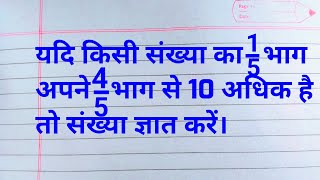 यदि किसी संख्या का 1/5 भाग
अपने 4/5 भाग से 10 अधिक है
तो संख्या ज्ञात करें।